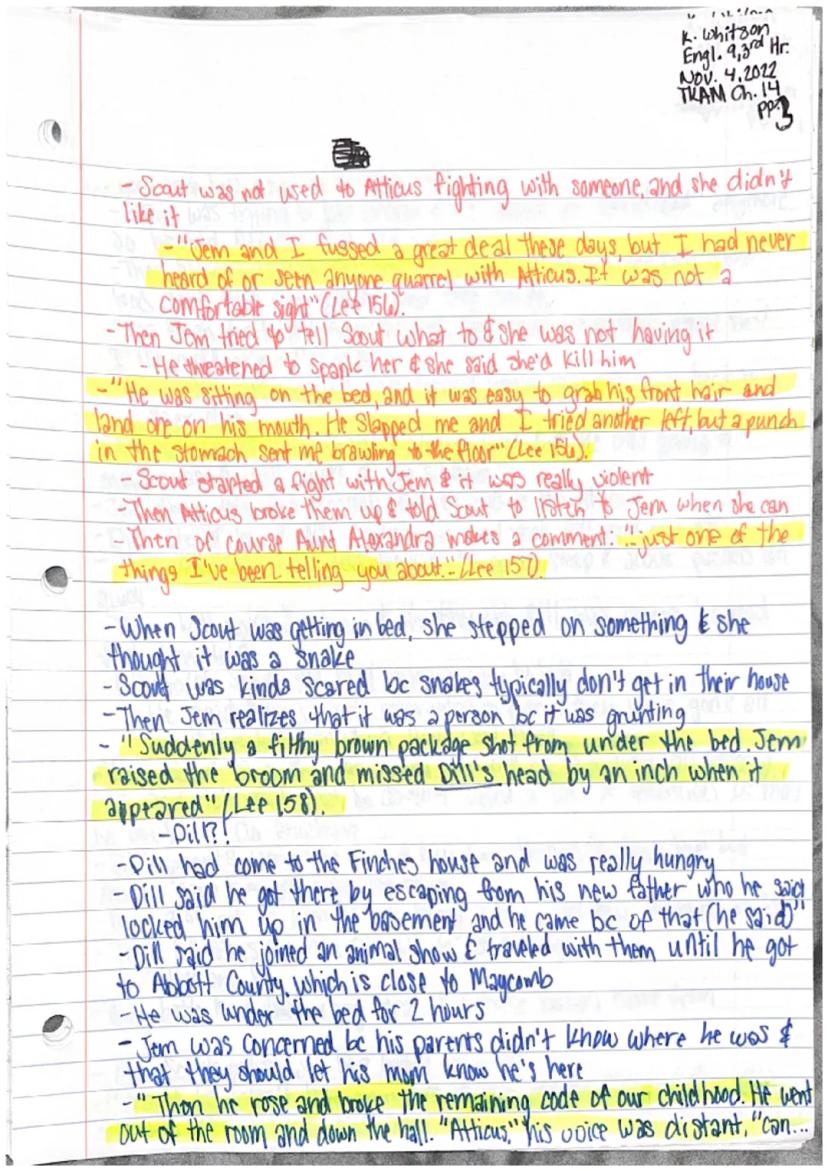 K. Whitson
K. Whitson
Engl. 9, 3rd Hr.
Nov. 4, 2022
TKAM Ch. 14
pp. 3
- Scout was not used to Atticus fighting with someone, and she didn't
like it
- "Jem and I fussed a great deal these days, but I had never
heard of or seen anyone quarrel with Atticus. It was not a
comfortable sight" (Lee 156).
- Then Jem tried to tell Scout what to & she was not having it
- He threatened to spank her & she said she'd kill him
- "He was sitting on the bed, and it was easy to grab his front hair and
land one on his mouth. He slapped me and I tried another left, but a punch
in the stomach sent me brawling to the floor" (Lee 156).
- Scout started a fight with Jem & it was really violent
- Then Atticus broke them up & told Scout to listen to Jem when she can
- Then of course Aunt Alexandra makes a comment: "...just one of the
things I've been telling you about.." (Lee 157).
- When Scout was getting in bed, she stepped on something & she
thought it was a snake
- Scout was kinda scared bc snakes typically don't get in their house
- Then Jem realizes that it was a person bc it was grunting
- "Suddenly a filthy brown package shot from under the bed. Jem
raised the broom and missed Dill's head by an inch when it
appeared" (Lee 158).
- Dill?!
- Dill had come to the Finches house and was really hungry
- Dill said he got there by escaping from his new father who he said
locked him up in the basement and he came bc of that (he said)"
- Dill said he joined an animal show & traveled with them until he got
to Abbott County, which is close to Maycomb
- He was under the bed for 2 hours
- Jem was concerned bc his parents didn't know where he was &
that they should let his mom know he's here
- "Then he rose and broke the remaining code of our childhood. He went
out of the room and down the hall. "Atticus," his voice was distant, "can...